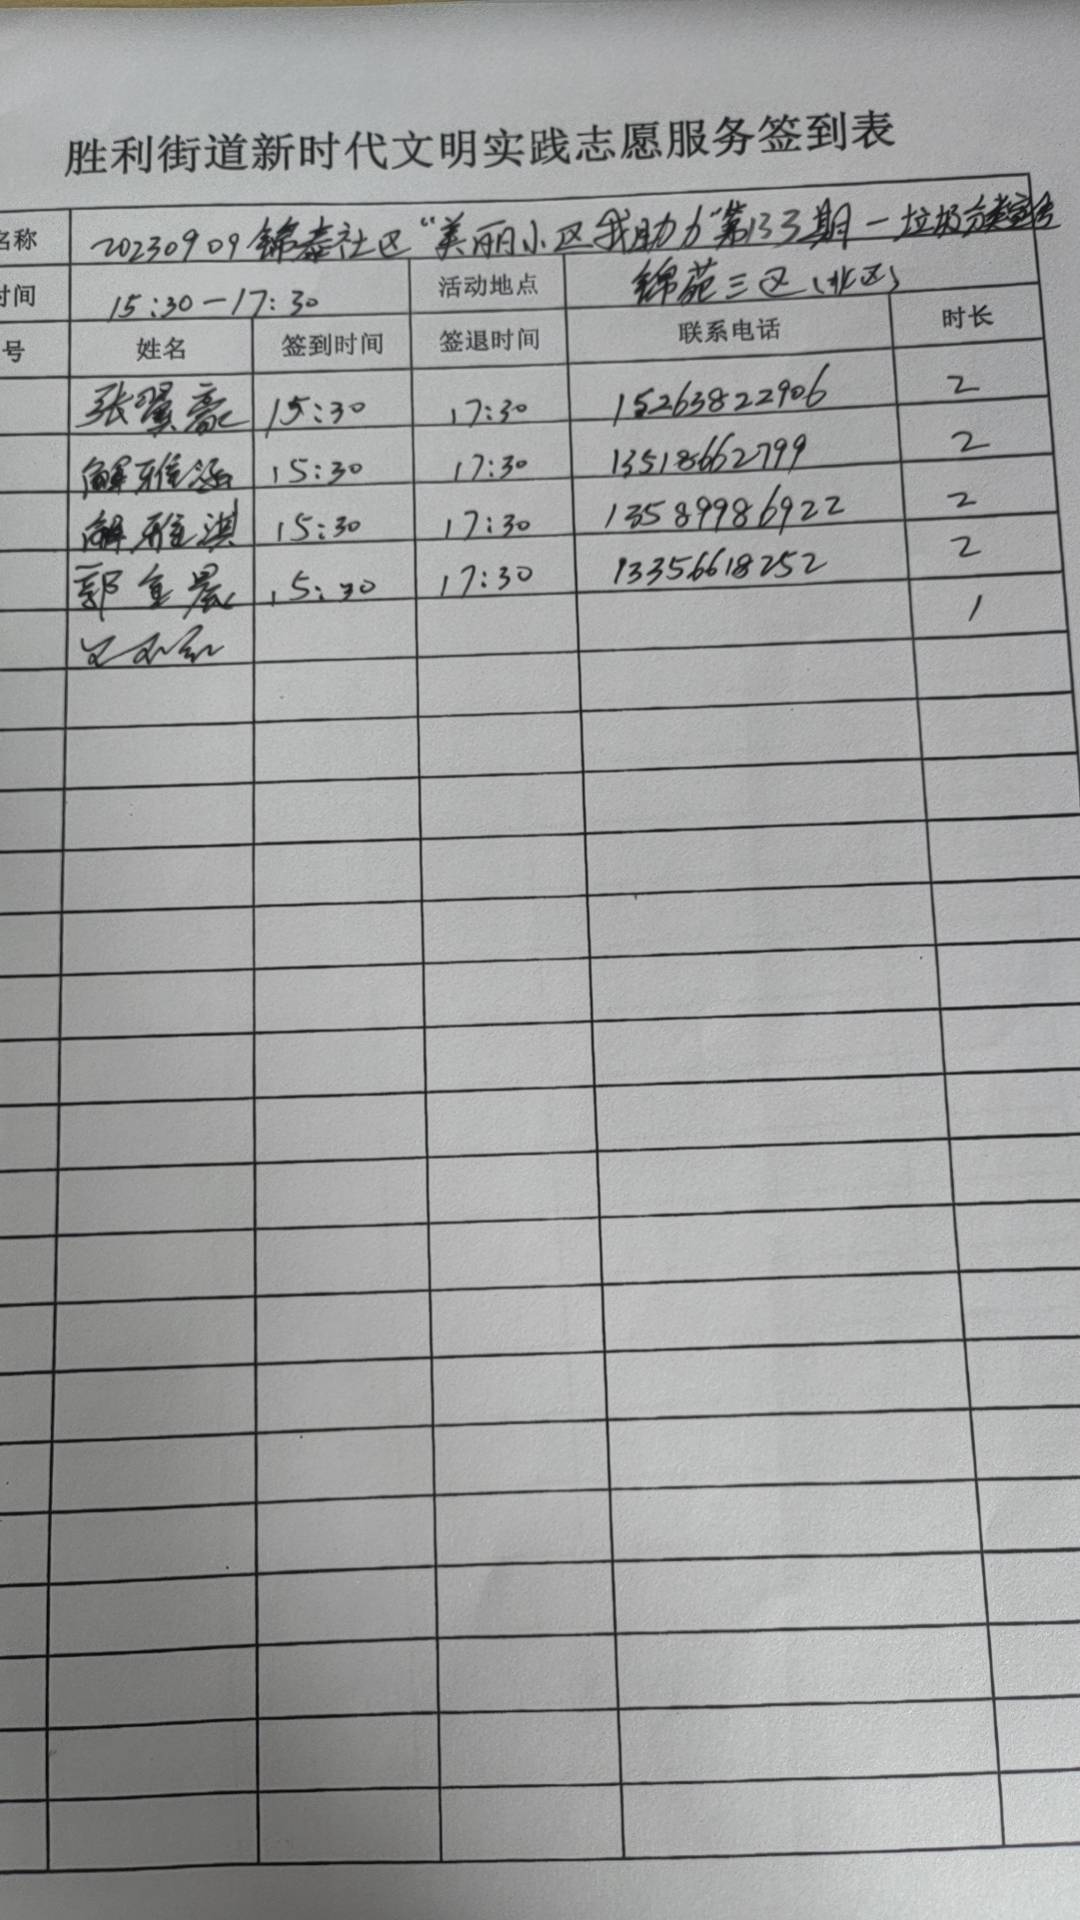 胜利街道新时代文明实践志愿服务签到表
名称 20230909锦泰社区“美丽小区我助力”第133期一垃圾分类宣传
时间 15:30一17:30 活动地点 锦苑三区(北区)
号 姓名 签到时间 签退时间 联系电话 时长
张翼豪 15:30 17:30 15263822906 2
解雅涵 15:30 17:30 13518662799 2
解雅淇 15:30 17:30 13589986922 2
郭金晨 15:30 17:30 13356618252 2
1